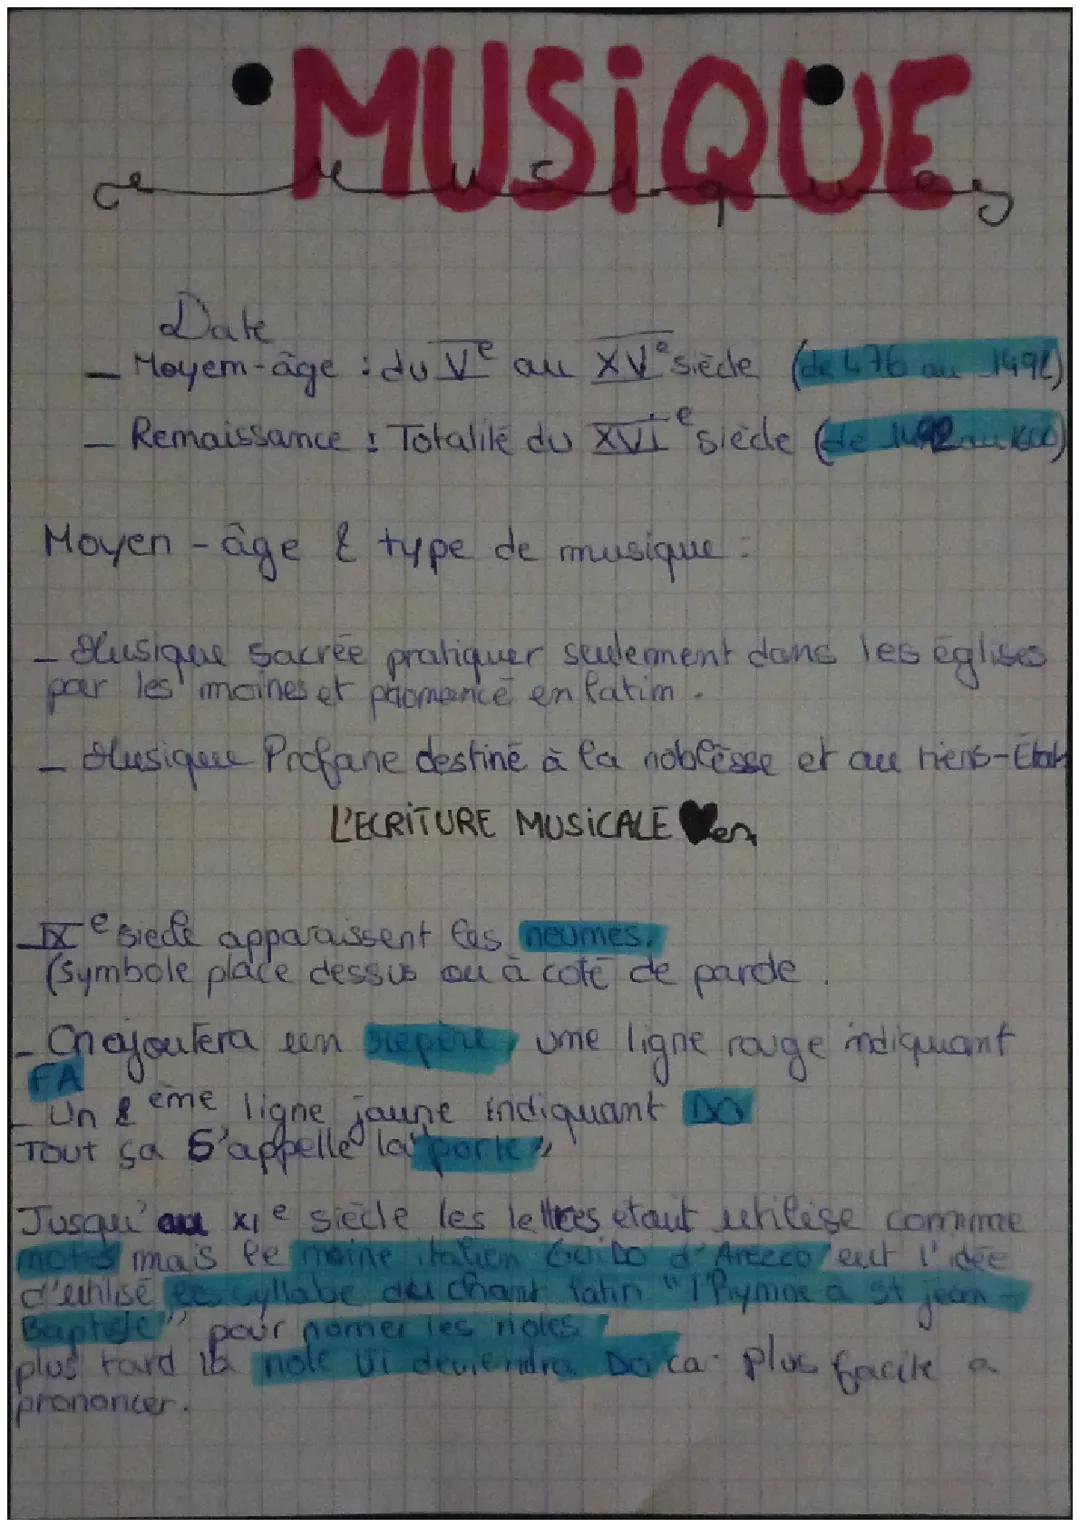 MUSiQUE
Date
– Moyen-âge : du Ve au XVe siècle (de 476 au 1492)
– Renaissance : Totalité du XVIe siècle (de 1492 au 1600)
Moyen-âge & type de musique :
– Musique sacrée pratiquer seulement dans les églises
par les moines et prononcé en latin.
– Musique Profane destiné à la noblesse et au tiers-État
L'ECRITURE MUSICALE
– IXe siecle apparaissent les neumes.
(symbole place dessus ou à coté de parole.
– On ajoutera un repère, une ligne rouge indiquant
FA
– Un 2eme ligne jaune indiquant DO
Tout sa s'appelle la "porté"
Jusqu'au XIe siècle les lettres etait utilise comme
notes mais le moine italien GuiDo d'Arezzo eut l'idée
d'utilisé les syllabe du chant latin "l'hymne a st jean-
Baptiste" pour nomer les notes.
plus tard la note UT deviendra DO ca plus facile a
prononcer.